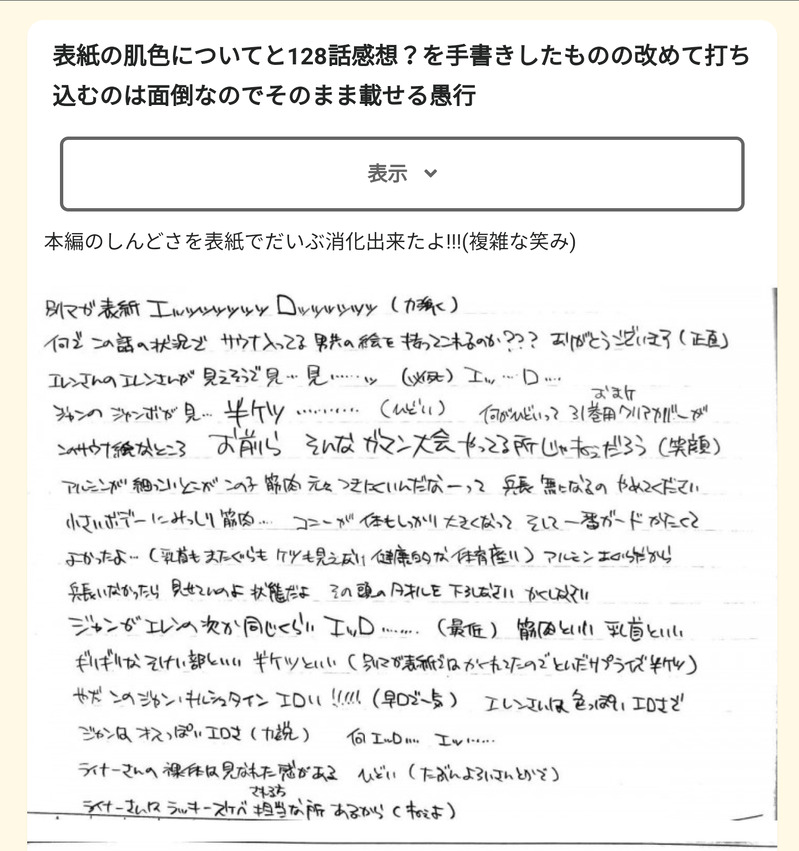 表紙の肌色についてと128話感想？を手書きしたものの改めて打ち
込むのは面倒なのでそのまま載せる愚行
表示
本編のしんどさを表紙でだいぶ消化出来たよ!!!(複雑な笑み)
別マガ表紙 エッッッッッッッ ロッッッッッッ (力強く)
何で この話の状況で サウナ入ってる 男共の絵を 持ってこれるのか??? ありがとうございます(正直)
エレンさんのエレンさんが 見えそうで見… 見……ッ (必死) エッ…ロ…
おまけ
ジャンの ジャンボが 見… 半ケツ ………… (ひどい) 何がひどいって 31巻用クリアカバーが
このサウナ絵なところ お前ら そんな ガマン大会 やってる所じゃねェだろう (笑顔)
アルミンが 細っこいとこが この子 筋肉 元々 つきにくいんだな―って 兵長 無になるの やめてください
小さいボデーにみっしり筋肉… コニーが 体もしっかり 大きくなって そして 一番ガード かたくて
よかったよ… (乳首も またぐらも ケツも見えない 健康的な 体育座り) アルミン
兵長いなかったら 見せてんのよ 状態だよ その頭のタオルを 下ろしなさい かくしなさい
ジャンがエレンの次か同じくらい エッロ…… (最低) 筋肉といい 乳首といい
ぎりぎりな そけい部といい 半ケツといい (別マガ表紙ではかくれてたのでとんだサプライズ半ケツ)
やだ このジャン・キルシュタイン エロい !!!!! (早口で一気) エレンさんは 色っぽい エロさで
ジャンは オスっぽい エロさ (力説) 何 エッロ… エッ……
ライナーさんの 裸体は 見なれた 感がある ひどい (たぶんよろいさんとかで)
される方
ライナーさんは ラッキースケベ 担当な所 あるから (ねぇよ)